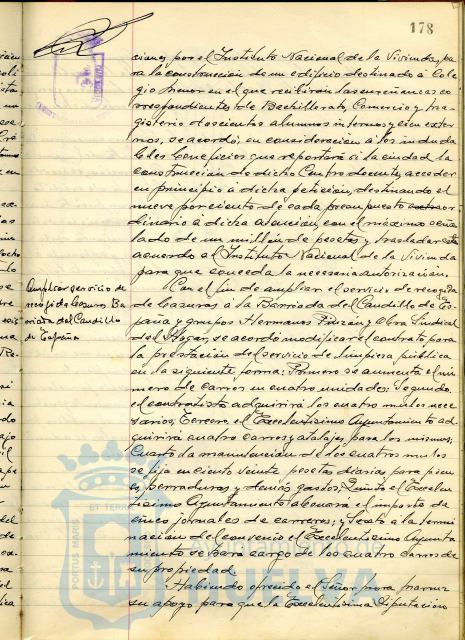 178
ciones por el Instituto Nacional de la Vivienda, pa
ra la construcción de un edificio destinado a Cole
gio Menor en el que recibirán las enseñanzas co
rrespondientes de Bachillerato, Comercio y Ma
gisterio doscientos alumnos internos y cien exter
nos, se acordó, en consideración a los induda
bles beneficios que reportará a la ciudad la
construcción de dicho Centro docente, acceder
en principio a dicha petición, destinando el
nueve por ciento de cada presupuesto extraor
dinario a dicha atención, con el máximo seña
lado de un millón de pesetas y trasladar este
acuerdo al Instituto Nacional de la Vivienda
para que conceda la necesaria autorización.
Ampliar servicio de
recogida basuras Ba
rriada del Caudillo
de España
Con el fin de ampliar el servicio de recogida
de basuras a la Barriada del Caudillo de Es
paña y grupos Hermanos Pinzón y Obra Sindical
del Hogar, se acordó modificar el contrato para
la prestación del servicio de limpieza pública
en la siguiente forma: Primero se aumenta el nú
mero de carros en cuatro unidades; segundo
el contratista adquirirá los cuatro mulos nece
sarios; Tercero el Excelentísimo Ayuntamiento ad
quirirá cuatro carros y atalajes para los mismos;
Cuarto la manutención de los cuatro mulos
se fija en ciento veinte pesetas diarias, para pien
sos, herraduras y demás gastos; Quinto el Excelen
tísimo Ayuntamiento abonará el importe de
cinco jornales de carreros; y Sexto a la termi
nación del convenio el Excelentísimo Ayunta
miento se hará cargo de los cuatro carros de
su propiedad.
Habiendo ofrecido el Señor
su apoyo para que la Excelentísima Diputación
ET TERRAE
PORTUS MARIS
Ayuntamiento de
HUELVA